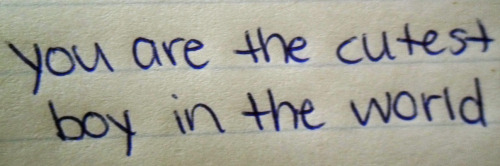 you are the cutest
boy in the world